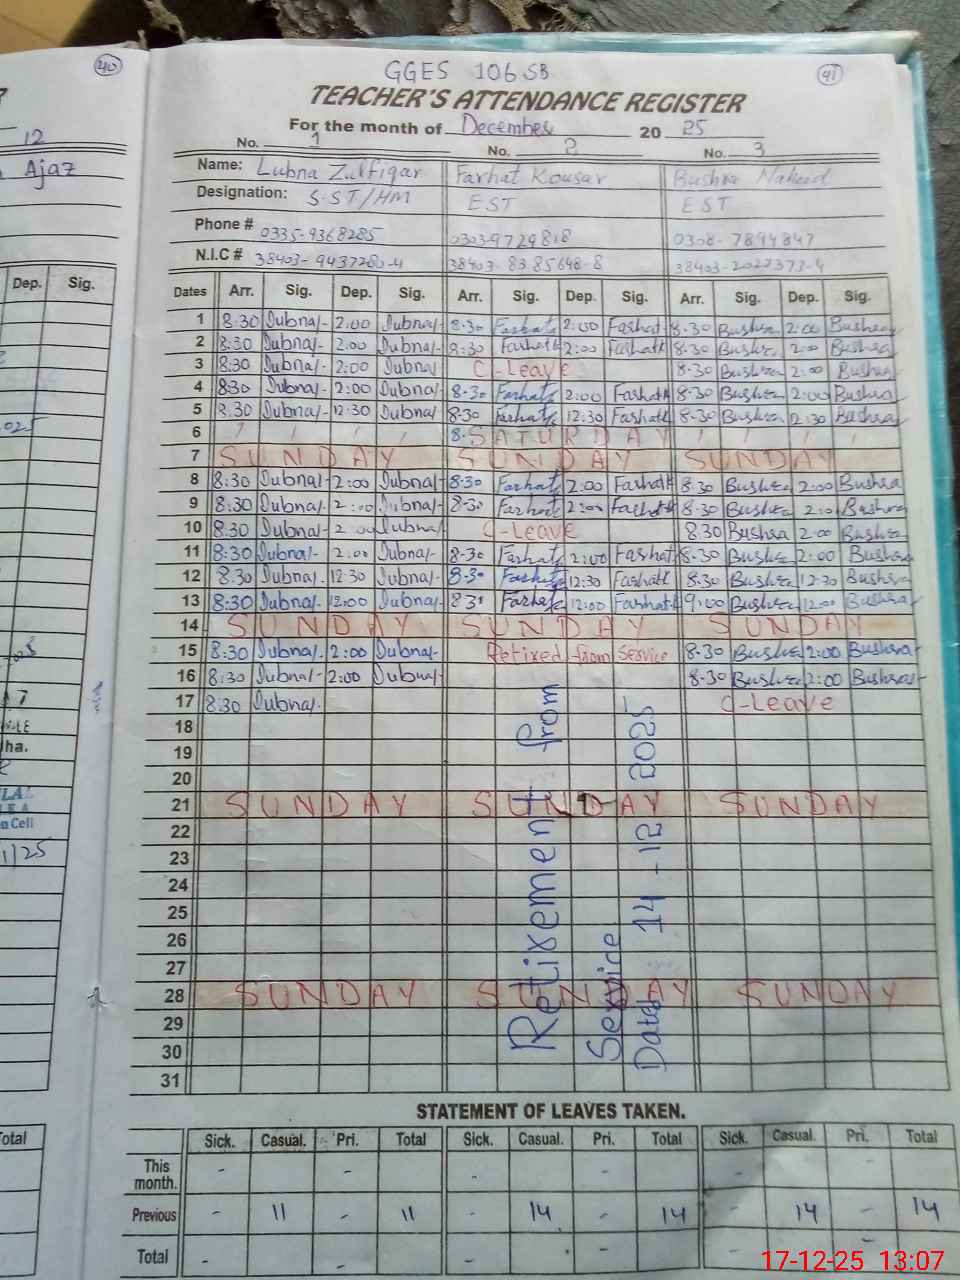 40
GGES 106 SB
41
TEACHER'S ATTENDANCE REGISTER
For the month of December 20 25
No. 1 No. 2 No. 3
12
Ajaz
Name: Lubna Zulfiqar Farhat Kousar Bushra Naheed
Designation: S.ST/HM EST EST
Phone # 0335-9368285 0303-9729818 0308-7894847
N.I.C # 38403-9437280-4 38403-8385648-8 38403-2022373-4
Dep. Sig.
Dates Arr. Sig. Dep. Sig. Arr. Sig. Dep. Sig. Arr. Sig. Dep. Sig.
1 8:30 Lubna 2:00 Lubna 8-30 Farhat 2:00 Farhat 8-30 Bushra 2:00 Bushra
2 8:30 Lubna 2:00 Lubna 8:30 Farhat 2:00 Farhat 8-30 Bushra 2:00 Bushra
3 8:30 Lubna 2:00 Lubna C-Leave 8-30 Bushra 2:00 Bushra
4 8:30 Lubna 2:00 Lubna 8-30 Farhat 2:00 Farhat 8-30 Bushra 2:00 Bushra
5 8:30 Lubna 12:30 Lubna 8-30 Farhat 12:30 Farhat 8-30 Bushra 2:30 Bushra
6 8. SATURDAY
7 SUNDAY SUNDAY SUNDAY
8 8:30 Lubna 2:00 Lubna 8-30 Farhat 2:00 Farhat 8-30 Bushra 2:00 Bushra
9 8:30 Lubna 2:00 Lubna 8-30 Farhat 2:00 Farhat 8-30 Bushra 2:00 Bushra
10 8:30 Lubna 2:00 Lubna C-Leave 8.30 Bushra 2:00 Bushra
11 8:30 Lubna 2:00 Lubna 8-30 Farhat 2:00 Farhat 8-30 Bushra 2:00 Bushra
12 8:30 Lubna 12:30 Lubna 8-30 Farhat 12:30 Farhat 8-30 Bushra 12-30 Bushra
13 8:30 Lubna 12:00 Lubna 8 30 Farhat 12:00 Farhat 9:00 Bushra 12:00 Bushra
14 SUNDAY SUNDAY SUNDAY
15 8:30 Lubna 2:00 Lubna Retired from Service 8-30 Bushra 2:00 Bushra
16 8:30 Lubna 2:00 Lubna 8-30 Bushra 2:00 Bushra
17 8:30 Lubna C-Leave
18
19
20
21 SUNDAY SUNDAY SUNDAY
22
23
24
25
26
27
28 SUNDAY SUNDAY SUNDAY
29
30
31
Retirement from
Service
Date 14-12 2025
ha.
n Cell
1/25
STATEMENT OF LEAVES TAKEN.
Total
Sick. Casual. Pri. Total Sick. Casual. Pri. Total Sick. Casual. Pri. Total
This month. - - - - - -
Previous - 11 - 11 - 14 - 14 - 14 - 14
Total - - - - -
17-12-25 13:07